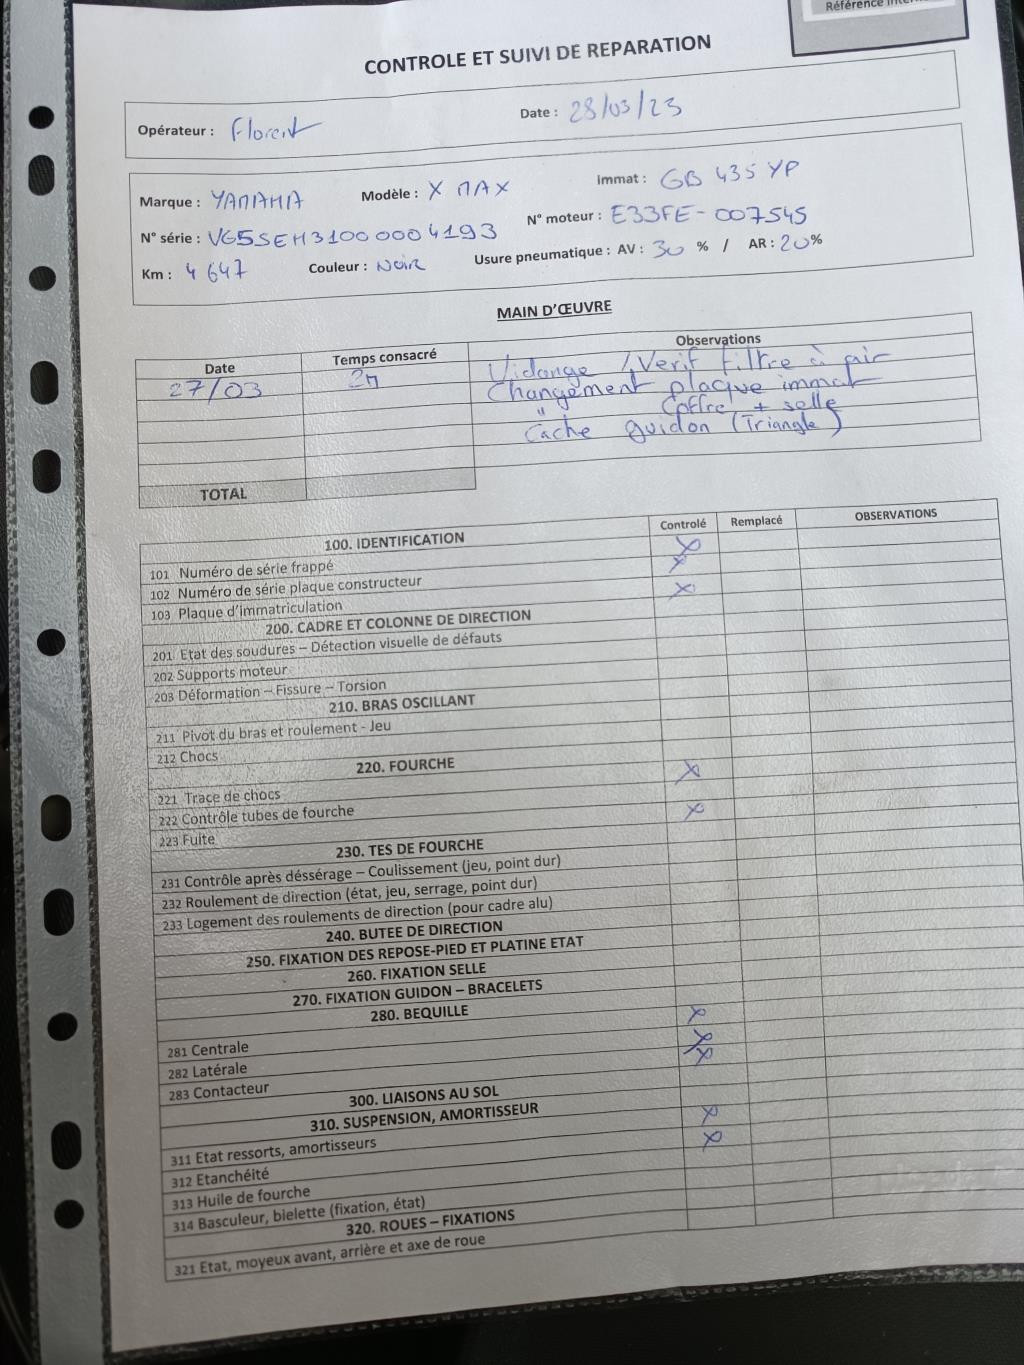 Référence
CONTROLE ET SUIVI DE REPARATION
Opérateur : Florent
Date : 28/03/23
Marque : YAMAHA Modèle : X MAX Immat : GB 435 YP
N° série : VG5SEH31000004193 N° moteur : E33FE-007545
Km : 4 647 Couleur : Noir Usure pneumatique : AV : 30 % / AR : 20%
MAIN D'ŒUVRE
Date Temps consacré Observations
27/03 2H Vidange / Verif filtre à air
Changement plaque immat
" Coffre + selle
Cache guidon (Triangle)
TOTAL
Controlé Remplacé OBSERVATIONS
100. IDENTIFICATION
101 Numéro de série frappé X
102 Numéro de série plaque constructeur X
103 Plaque d'immatriculation X
200. CADRE ET COLONNE DE DIRECTION
201 Etat des soudures – Détection visuelle de défauts
202 Supports moteur
203 Déformation – Fissure – Torsion
210. BRAS OSCILLANT
211 Pivot du bras et roulement - Jeu
212 Chocs
220. FOURCHE
221 Trace de chocs X
222 Contrôle tubes de fourche
223 Fuite X
230. TES DE FOURCHE
231 Contrôle après déssérage – Coulissement (jeu, point dur)
232 Roulement de direction (état, jeu, serrage, point dur)
233 Logement des roulements de direction (pour cadre alu)
240. BUTEE DE DIRECTION
250. FIXATION DES REPOSE-PIED ET PLATINE ETAT
260. FIXATION SELLE
270. FIXATION GUIDON – BRACELETS
280. BEQUILLE
281 Centrale X
282 Latérale X
283 Contacteur X
300. LIAISONS AU SOL
310. SUSPENSION, AMORTISSEUR
311 Etat ressorts, amortisseurs X
312 Etanchéité X
313 Huile de fourche
314 Basculeur, bielette (fixation, état)
320. ROUES – FIXATIONS
321 Etat, moyeux avant, arrière et axe de roue